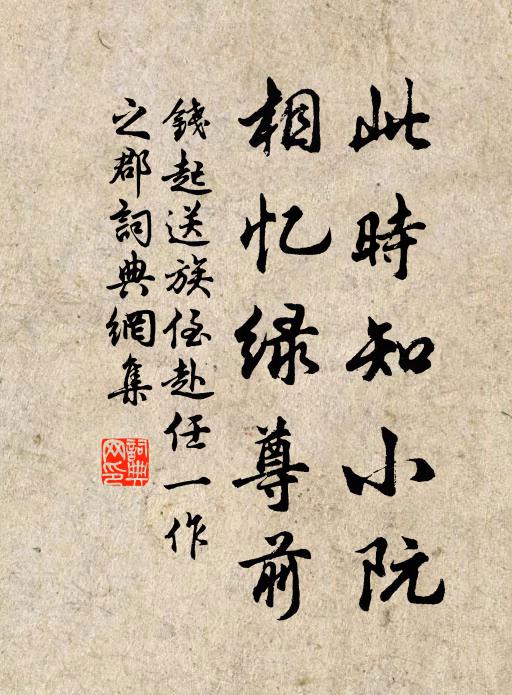 此時知小阮
相忆绿尊前
錢起送族侄赴任一作
之郡詞典網集
詞典网印